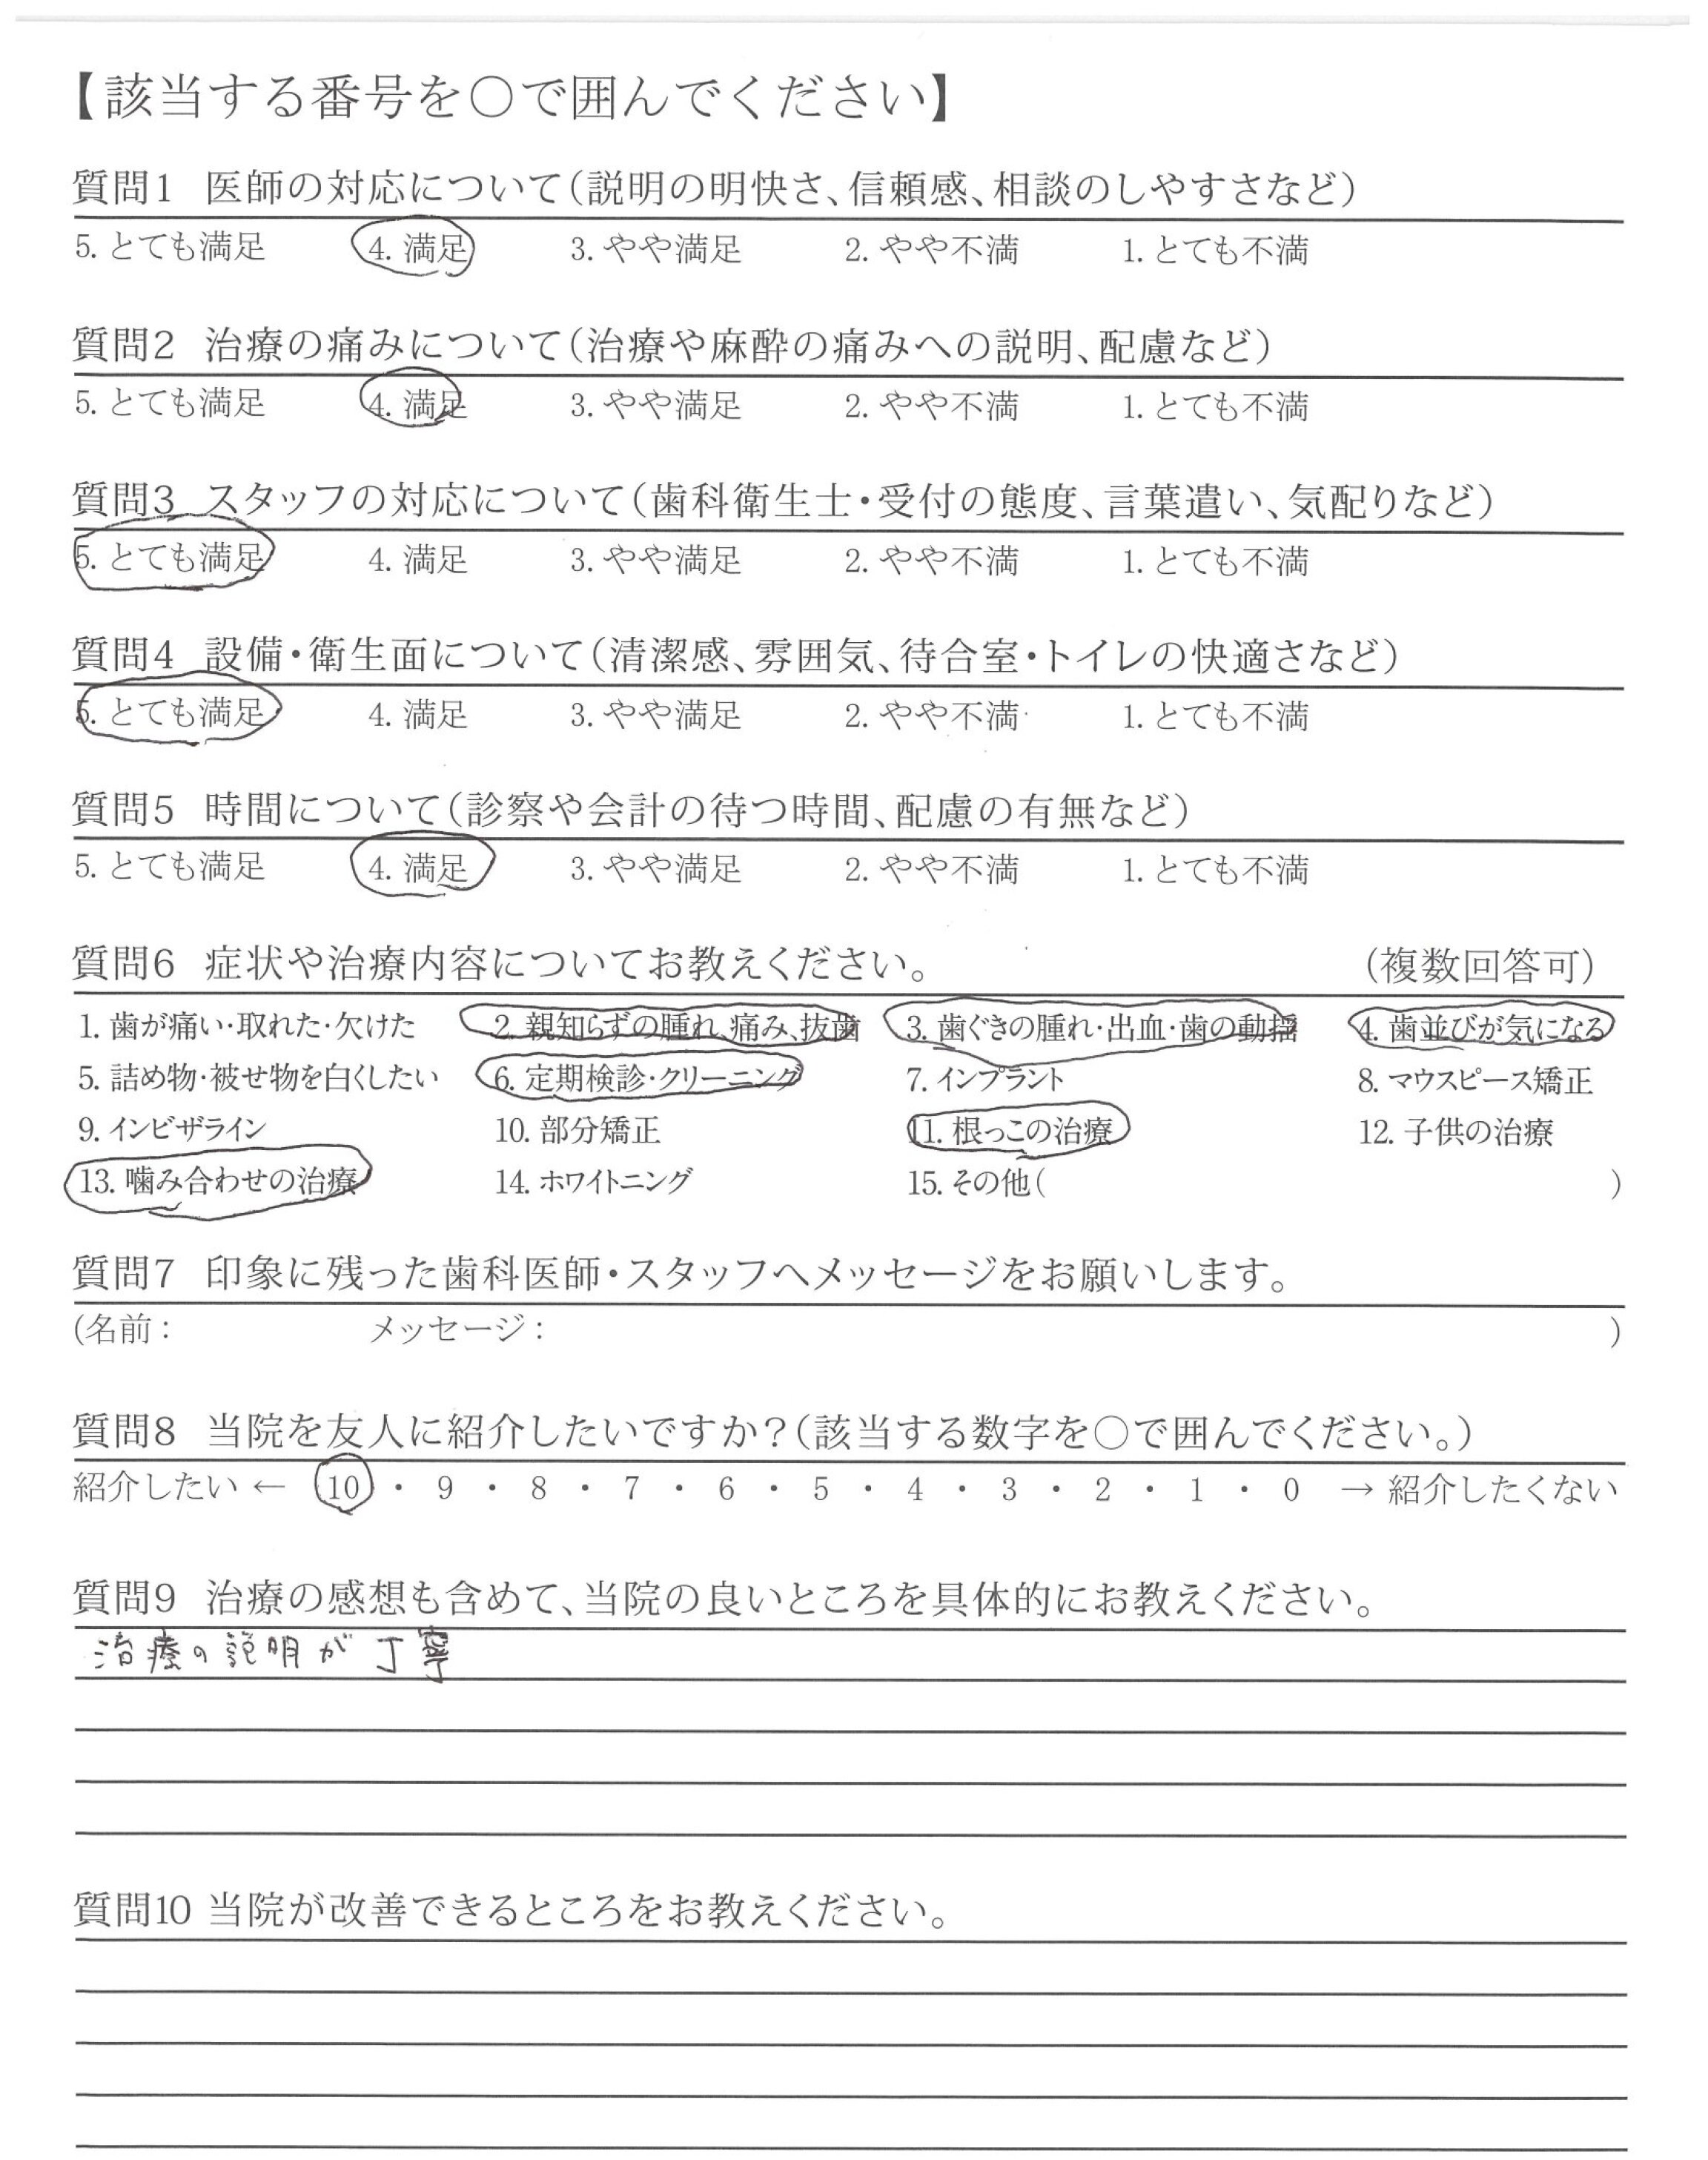 【該当する番号を○で囲んでください】
質問1 医師の対応について（説明の明快さ、信頼感、相談のしやすさなど）
5. とても満足 4. 満足 3. やや満足 2. やや不満 1. とても不満
質問2 治療の痛みについて（治療や麻酔の痛みへの説明、配慮など）
5. とても満足 4. 満足 3. やや満足 2. やや不満 1. とても不満
質問3 スタッフの対応について（歯科衛生士・受付の態度、言葉遣い、気配りなど）
5. とても満足 4. 満足 3. やや満足 2. やや不満 1. とても不満
質問4 設備・衛生面について（清潔感、雰囲気、待合室・トイレの快適さなど）
5. とても満足 4. 満足 3. やや満足 2. やや不満 1. とても不満
質問5 時間について（診察や会計の待つ時間、配慮の有無など）
5. とても満足 4. 満足 3. やや満足 2. やや不満 1. とても不満
質問6 症状や治療内容についてお教えください。 （複数回答可）
1. 歯が痛い・取れた・欠けた 2. 親知らずの腫れ、痛み、抜歯 3. 歯ぐきの腫れ・出血・歯の動揺 4. 歯並びが気になる
5. 詰め物・被せ物を白くしたい 6. 定期検診・クリーニング 7. インプラント 8. マウスピース矯正
9. インビザライン 10. 部分矯正 11. 根っこの治療 12. 子供の治療
13. 噛み合わせの治療 14. ホワイトニング 15. その他（ ）
質問7 印象に残った歯科医師・スタッフへメッセージをお願いします。
（名前： メッセージ： ）
質問8 当院を友人に紹介したいですか？（該当する数字を○で囲んでください。）
紹介したい ← 10 ・ 9 ・ 8 ・ 7 ・ 6 ・ 5 ・ 4 ・ 3 ・ 2 ・ 1 ・ 0 → 紹介したくない
質問9 治療の感想も含めて、当院の良いところを具体的にお教えください。
治療の説明が丁寧
質問10 当院が改善できるところをお教えください。